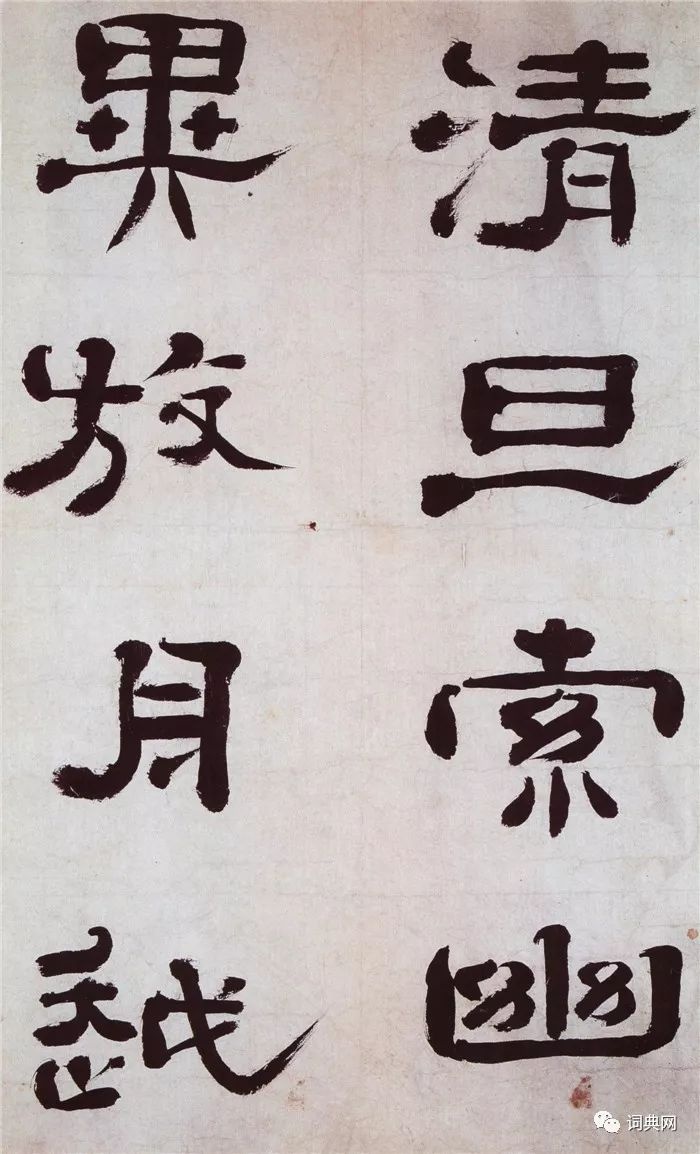 清旦索幽
異放舟越
词典网